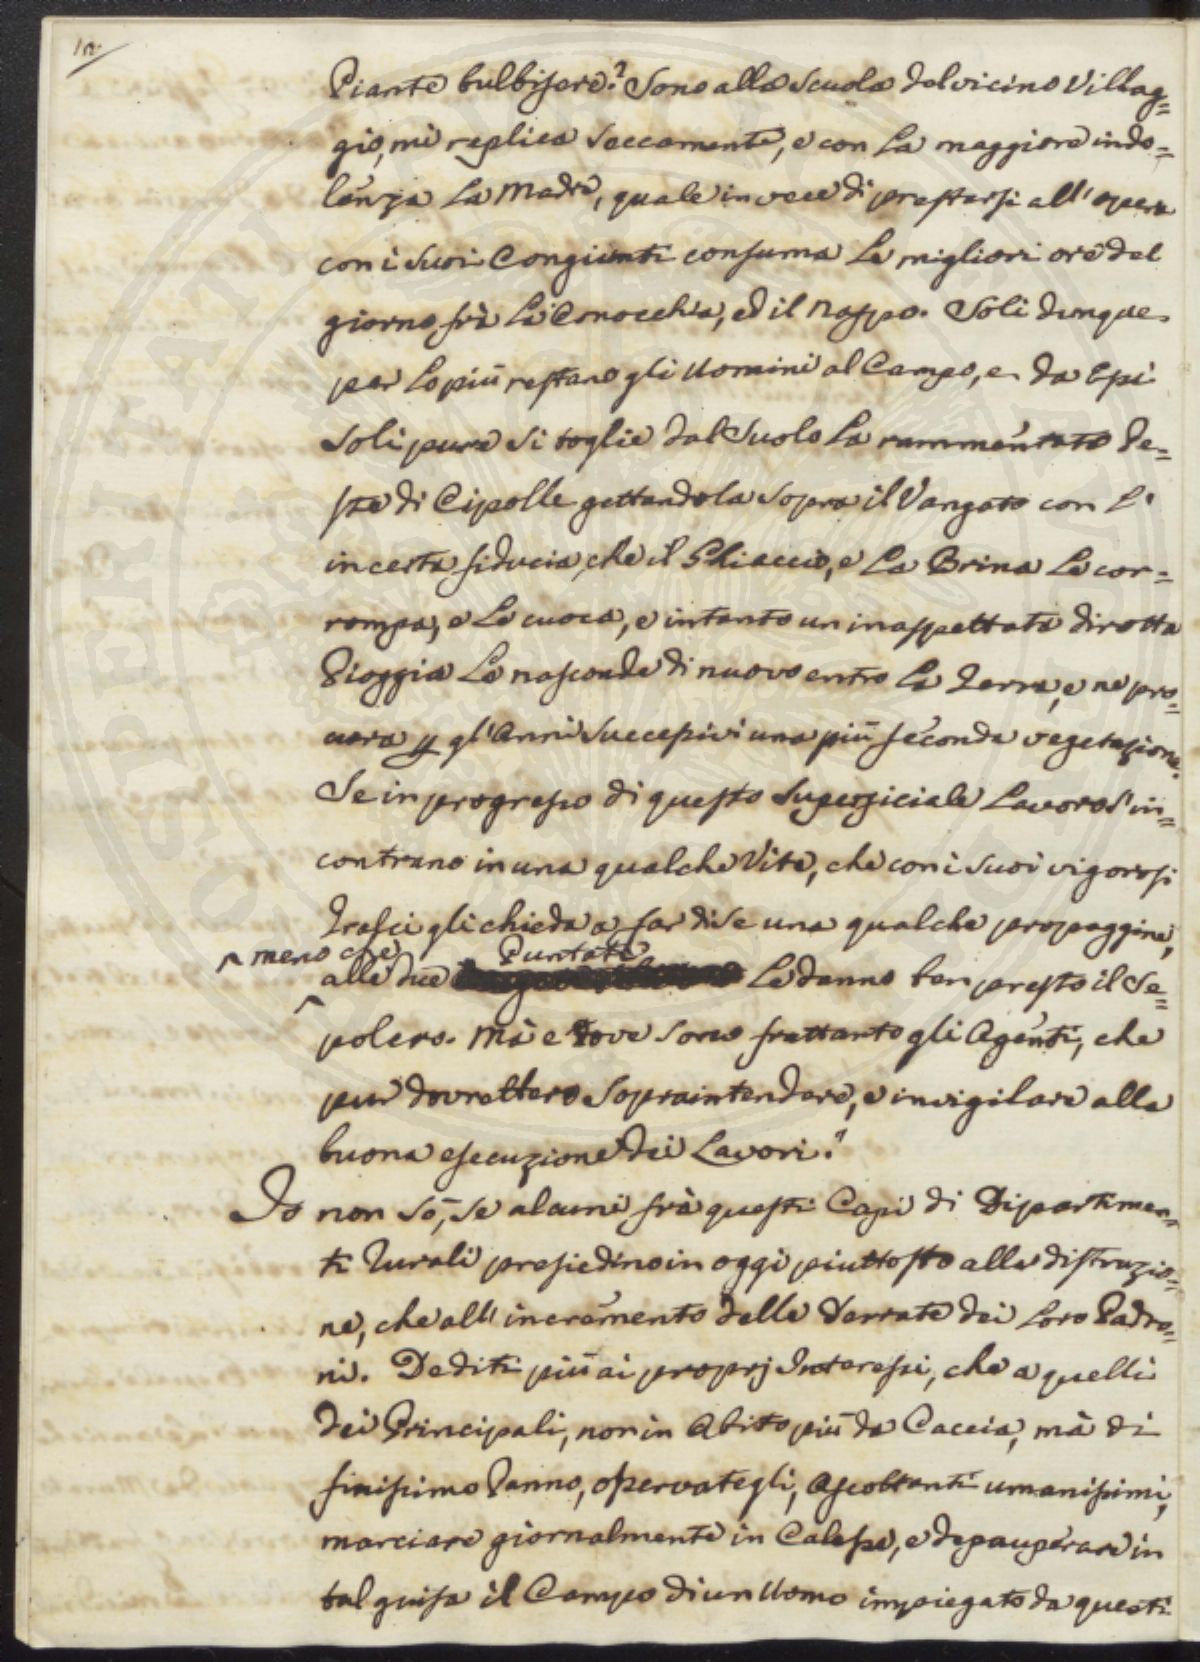 12.
Piante bulbifere? Sono alla scuola del vicino Villag=
gio, mi replica seccamente, e con la maggiore indo=
lenza la Madre, quale in vece di prestarsi all' opera
con i suoi Congiunti consuma le migliori ore del
giorno frà la Conocchia, ed il Naspo. Soli dunque
per lo più restano gli Uomini al Campo, e da Essi
soli pure si toglie dal Suolo la rammentata Pe=
ste di Cipolle gettandola sopra il Vangato con l'
incerta fiducia, che il Ghiaccio, e la Brina le cor=
rompa, e le cuoca, e intanto un inaspettata dirotta
Pioggia le nasconde di nuovo entro la Terra, e ne pro=
cura p gl' Anni successivi una più feconda vegetazione.
Se in progresso di questo superficiale Lavoro s' in=
contrano in una qualche Vite, che con i suoi vigorosi
Trasci gli chieda a far di se una qualche propaggine,
^ meno che Puntate
alle due le danno ben presto il Se=
polcro. Mà e dove sono frattanto gli Agenti, che
pur dovrebbero sopraintendere, e invigilare alla
buona esecuzione dei Lavori?
Io non sò, se alcuni frà questi Capi di Dipartimen=
ti Rurali presiedino in oggi piuttosto alla distruzio=
ne, che all' incremento delle Derrate dei loro Padro=
ni. Dediti più ai proprj Interessi, che a quelli
dei Principali, non in Abito più da Caccia, mà di
finissimo Panno, osservategli, Ascoltanti umanissimi,
marciare giornalmente in Calesse, e depauperare in
tal guisa il Campo di un Uomo impiegato da questi